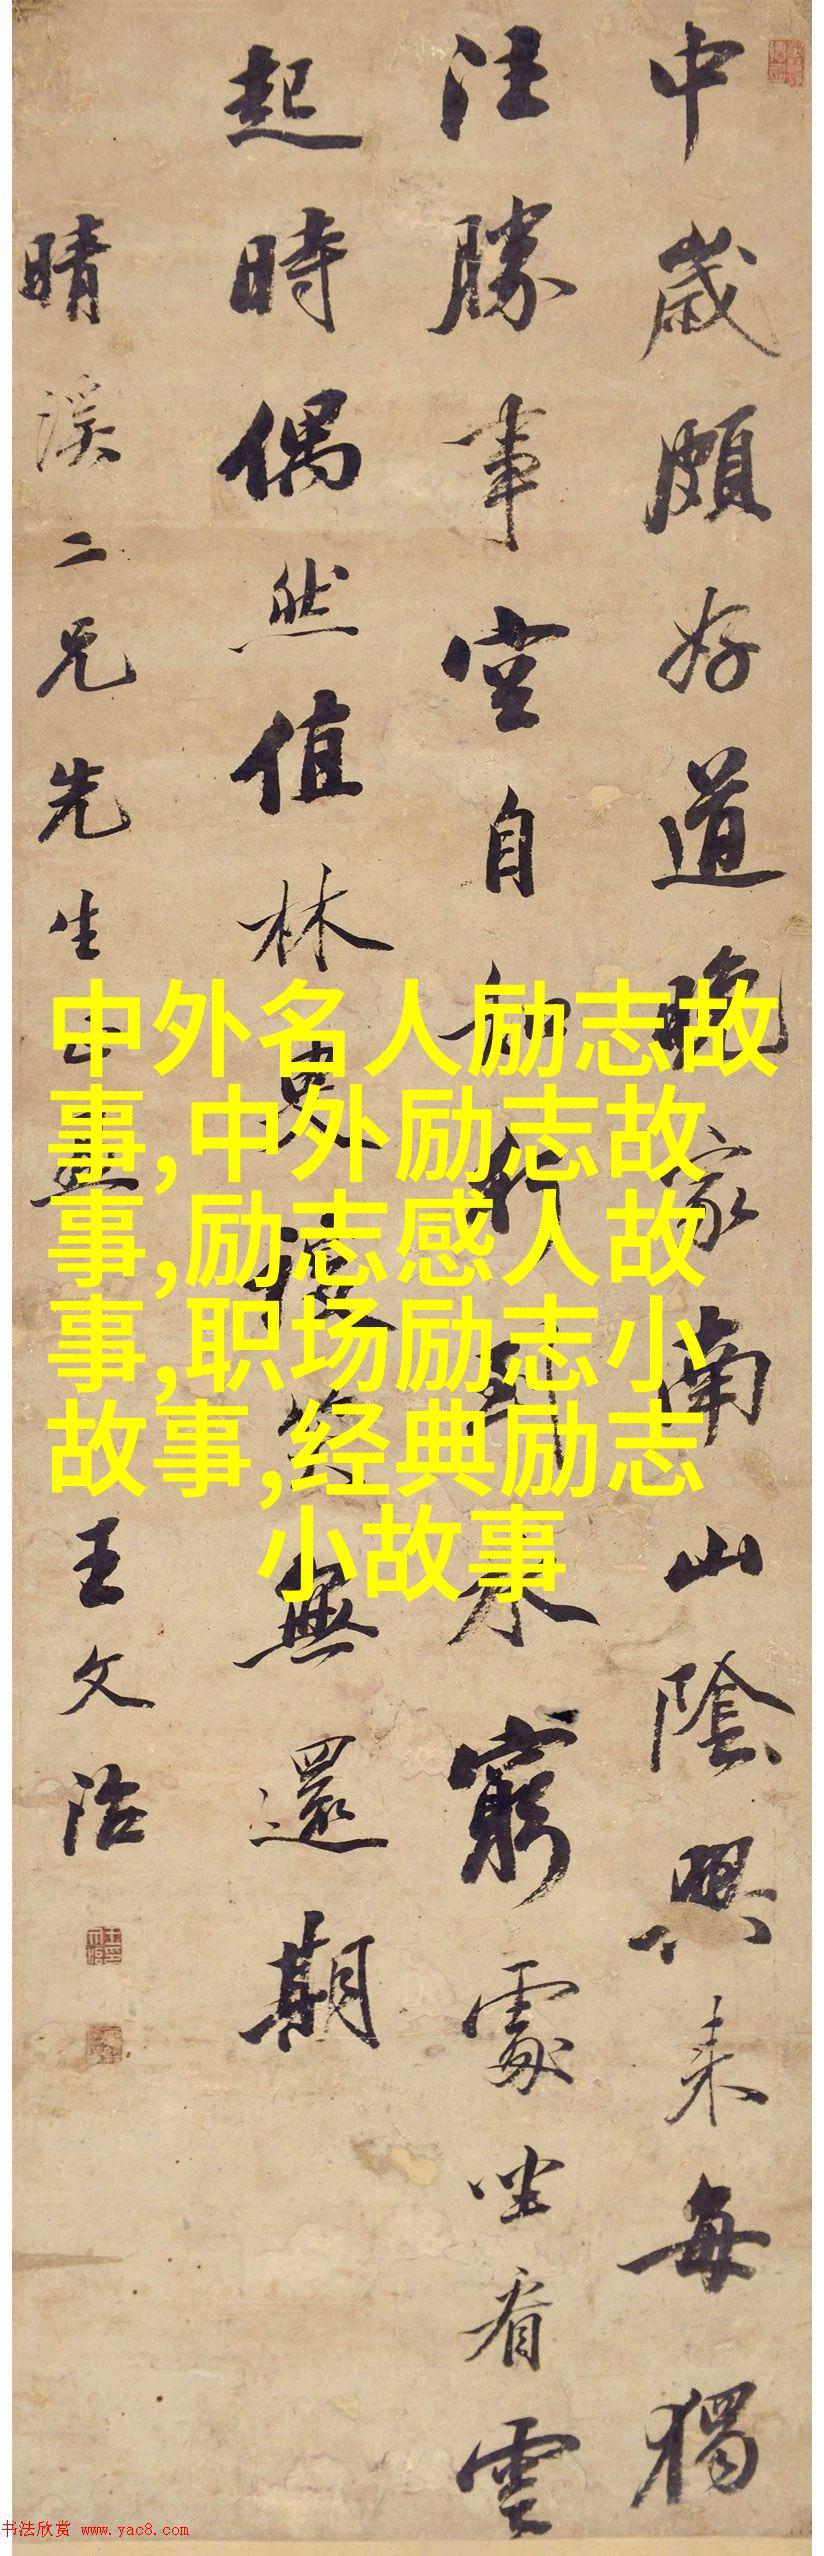 中歲頗好道晚家南山陰興來每獨
往勝事空自知行到水窮處坐看雲
起時偶然值林叟談笑無還期
晴溪二兄先生
王文治
中外名人励志故
事,中外励志故
事,励志感人故
事,职场励志小
故事,经典励志
小故事
书法欣赏 www.yac8.com